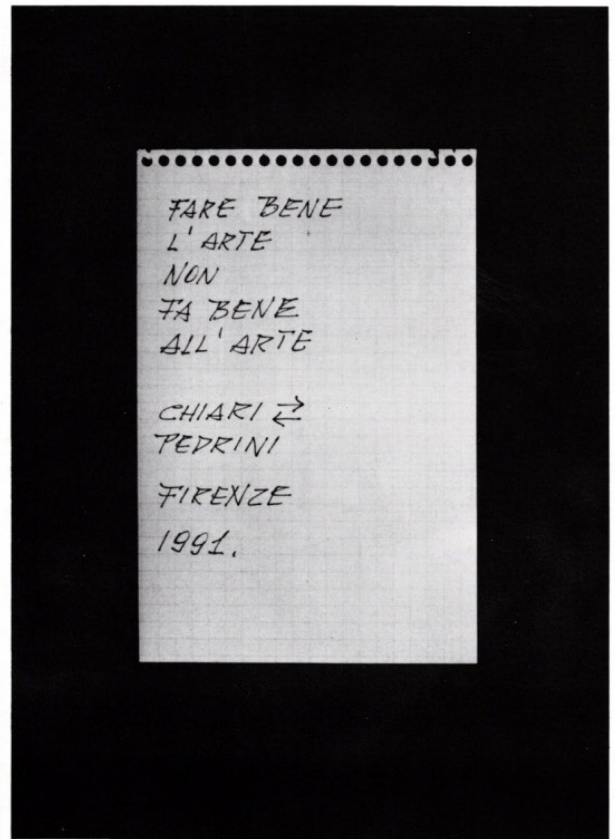 FARE BENE
L'ARTE
NON
FA BENE
ALL'ARTE
CHIARI ⇄
PEDRINI
FIRENZE
1991.